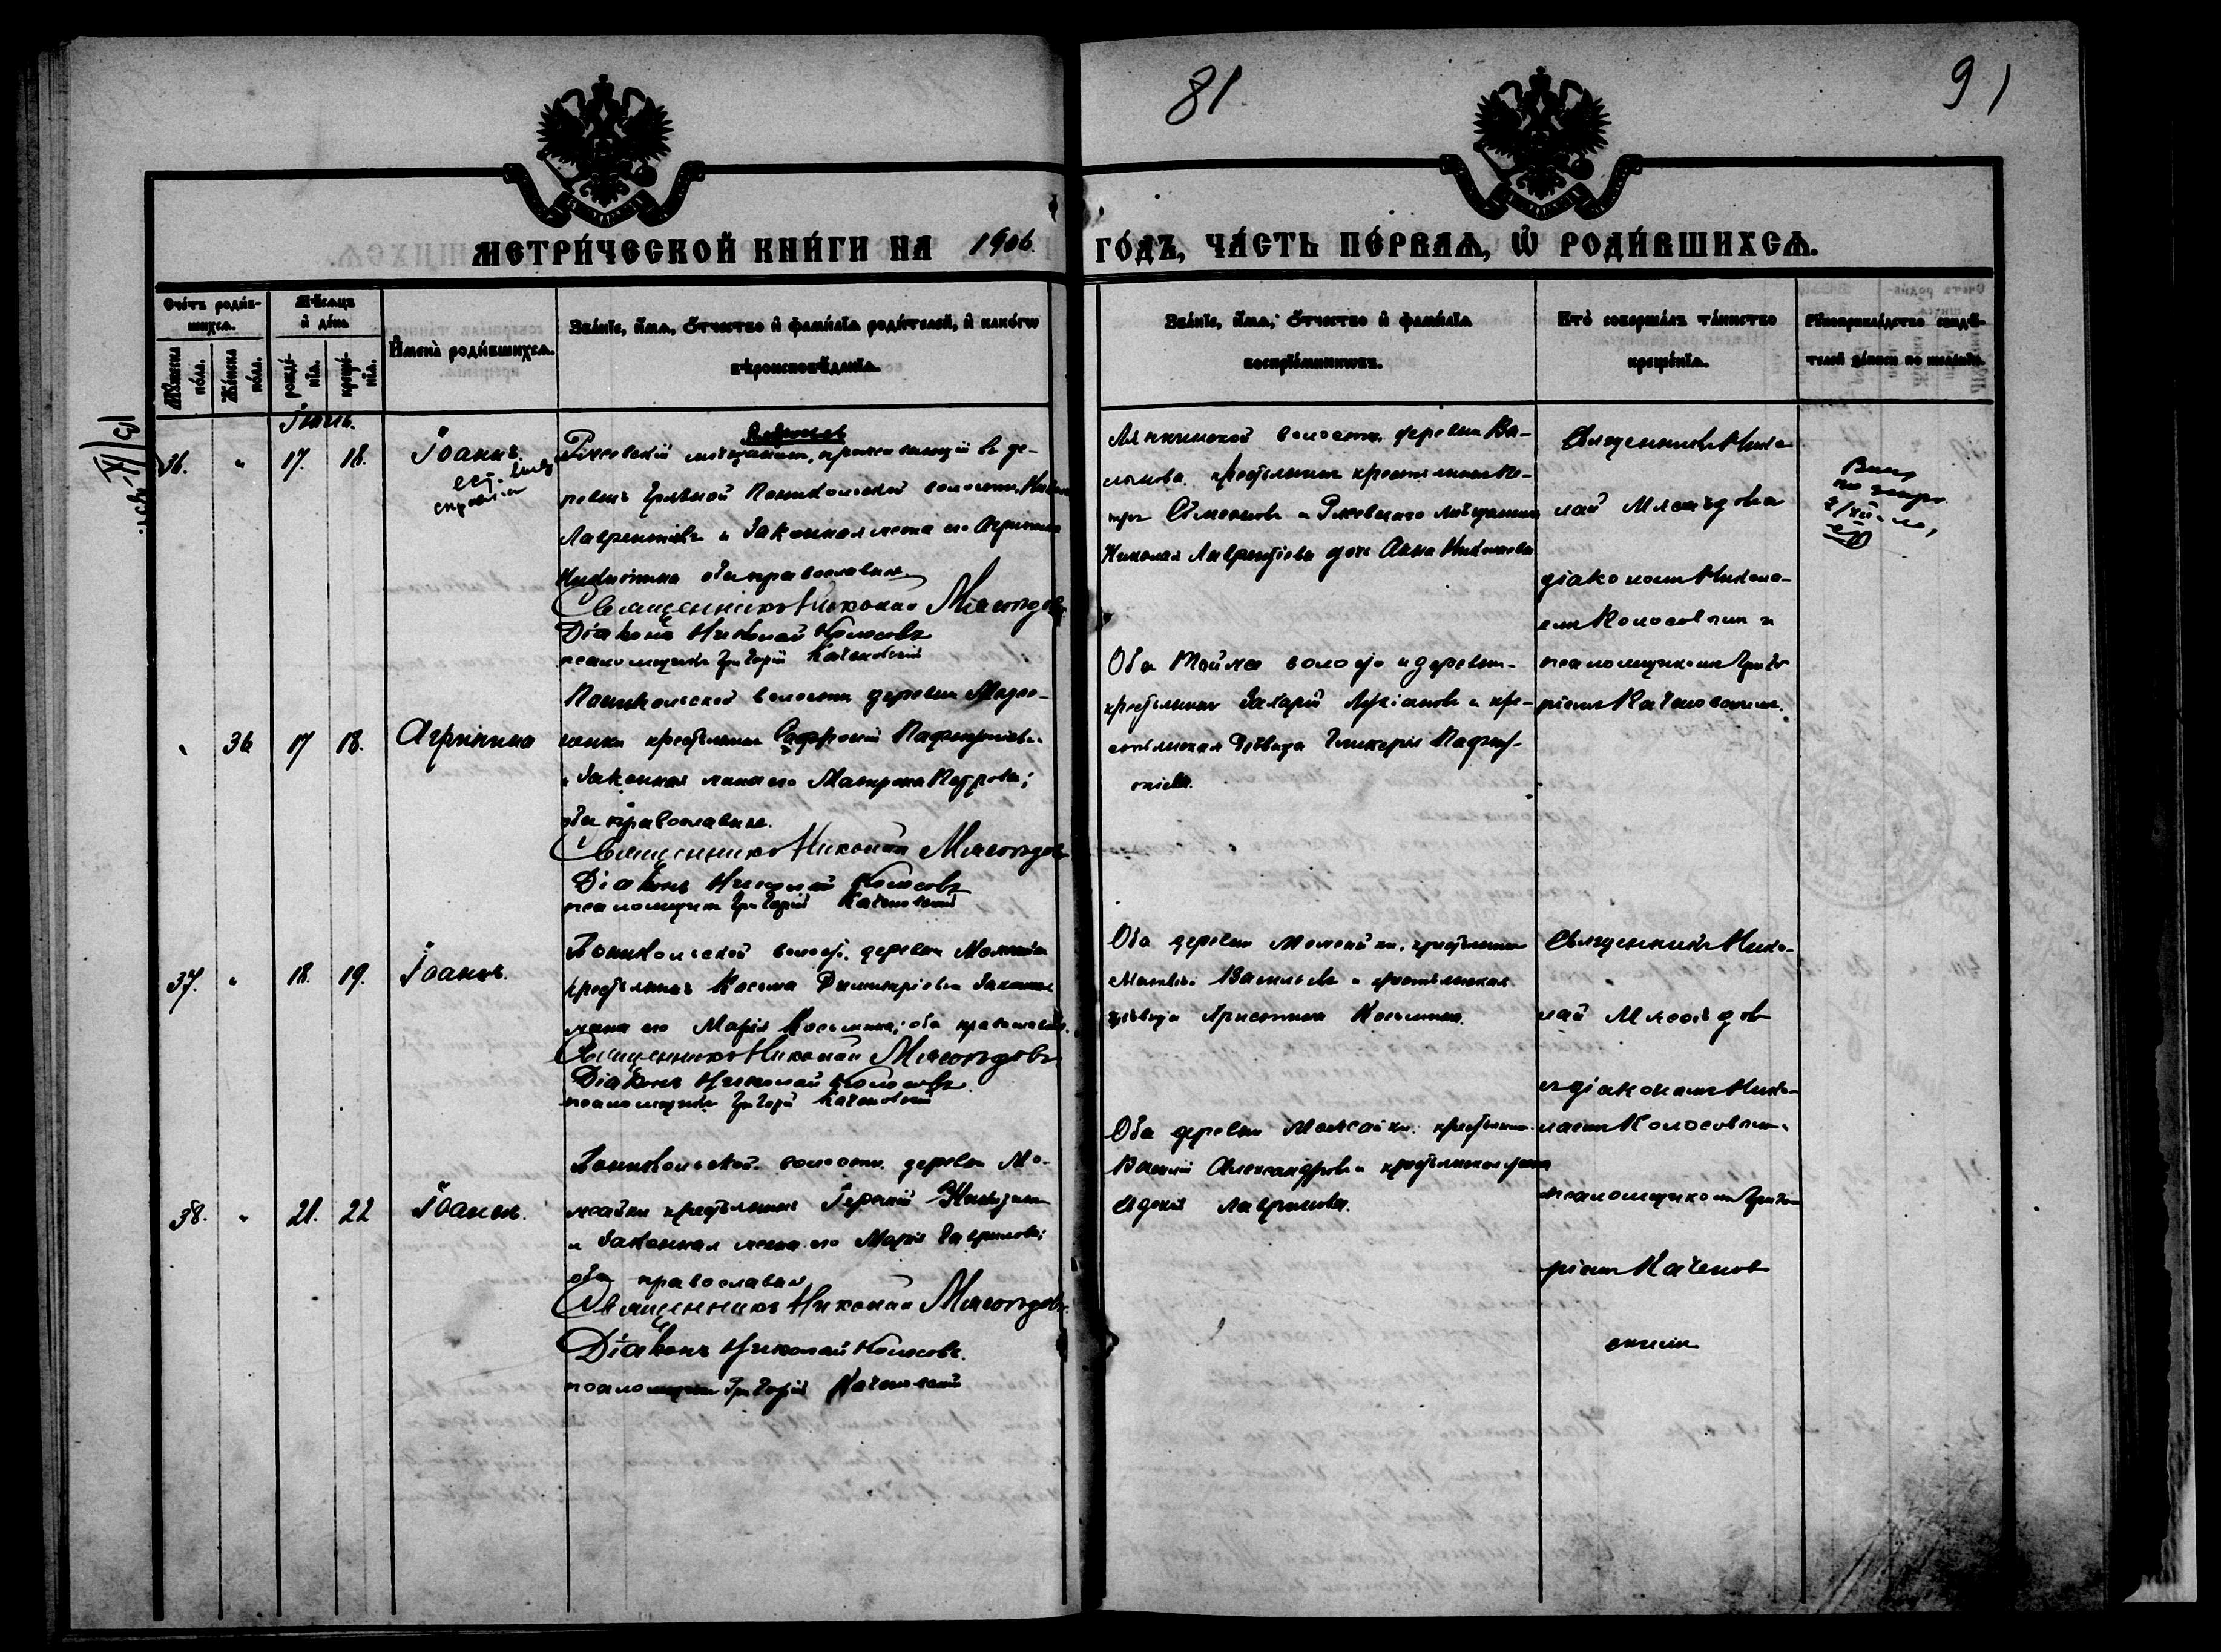 81
91
МЕТРИ́ЧЕСКОЙ КНИ́ГИ НА 1906 ГО́ДЪ, ЧА́СТЬ ПЕ́РВАѦ, Ѡ҆ РОДИ́ВШИХСѦ.
Сче́тъ роди́в-
шихсѧ.
Мѣ́сѧцъ
и҆ де́нь
И҆мена̀ роди́вшихсѧ.
Зва́нїе, и҆́мѧ, ѻ҆́тчество и҆ фамѝлїа роди́телей, и҆ како́гѡ
вѣроисповѣ́данїѧ.
Зва́нїе, и҆́мѧ, ѻ҆́тчество и҆ фамѝлїа
воспрїе́мникѡвъ.
Кто̀ соверша́лъ та́инство
креще́нїѧ.
Рꙋкоприкла́дство свидѣ́-
телей за́писи по жела́нїю.
Мꙋ́жеска
по́ла.
Же́нска
по́ла.
рожде́-
нїѧ.
креще́-
нїѧ.
36. " 17. 18. Іоаннъ.
Ржевскій мѣщанинъ, проживающій въ де-
ревнѣ Грязной Паникольской волости
Лаврентіевъ и законная жена его Агрипина
оба православные
Священникъ Николай Мясоѣдовъ
Діаконъ Николай Колосовъ
псаломщикъ Григорій Каченовскій
волости деревни Ва-
крестьянинъ Пе-
тръ Симеоновъ и Ржевскаго мѣщанина
Николая Лаврентіева дочь Анна Николаева
Священникъ Нико-
лай Мясоѣдовъ
діакономъ Никола-
емъ Колосовымъ и
псаломщикомъ Григо-
ріемъ Каченовскимъ.
" 36 17 18. Агрипина
Паникольской волости деревни
крестьянинъ Софроній Пафнутіевъ
и законная жена его Матрона Петрова;
оба православные.
Священникъ Николай Мясоѣдовъ
Діаконъ Николай Колосовъ
псаломщикъ Григорій Каченовскій
Оба той же волости и деревни
крестьянинъ Захарій Лукіановъ и кре-
стьянская дѣвица Гликерія Пафну-
тіева.
37. " 18. 19. Іоаннъ.
Паникольской волости деревни Можайки
крестьянинъ Косьма Димитріевъ и законная
жена его Марія Косьмина; оба православные.
Священникъ Николай Мясоѣдовъ
Діаконъ Николай Колосовъ
псаломщикъ Григорій Каченовскій
Оба деревни Можайки, крестьянинъ
Васильевъ и крестьянская
дѣвица Христина Косьмина.
Священникъ Нико-
лай Мясоѣдовъ
съ діакономъ Нико-
лаемъ Колосовымъ
псаломщикомъ Григо-
ріемъ Каченов-
скимъ
38. " 21. 22 Іоаннъ.
Паникольской волости деревни Мо-
жайки крестьянинъ
и законная жена его Марія Гаврилова;
оба православные
Священникъ Николай Мясоѣдовъ
Діаконъ Николай Колосовъ.
псаломщикъ Григорій Каченовскій
Оба деревни Можайки, крестьянинъ
Василій Александровъ и крестьянская
Евдокія Гаврилова.